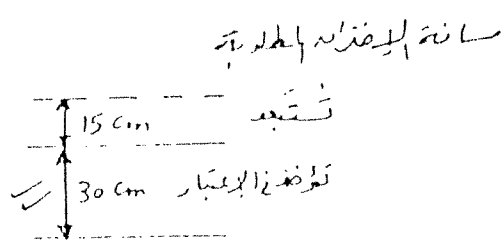 مسافة الإختراق المطلوبة
15 cm تُستَبعد
30 cm تؤخذ في الإعتبار